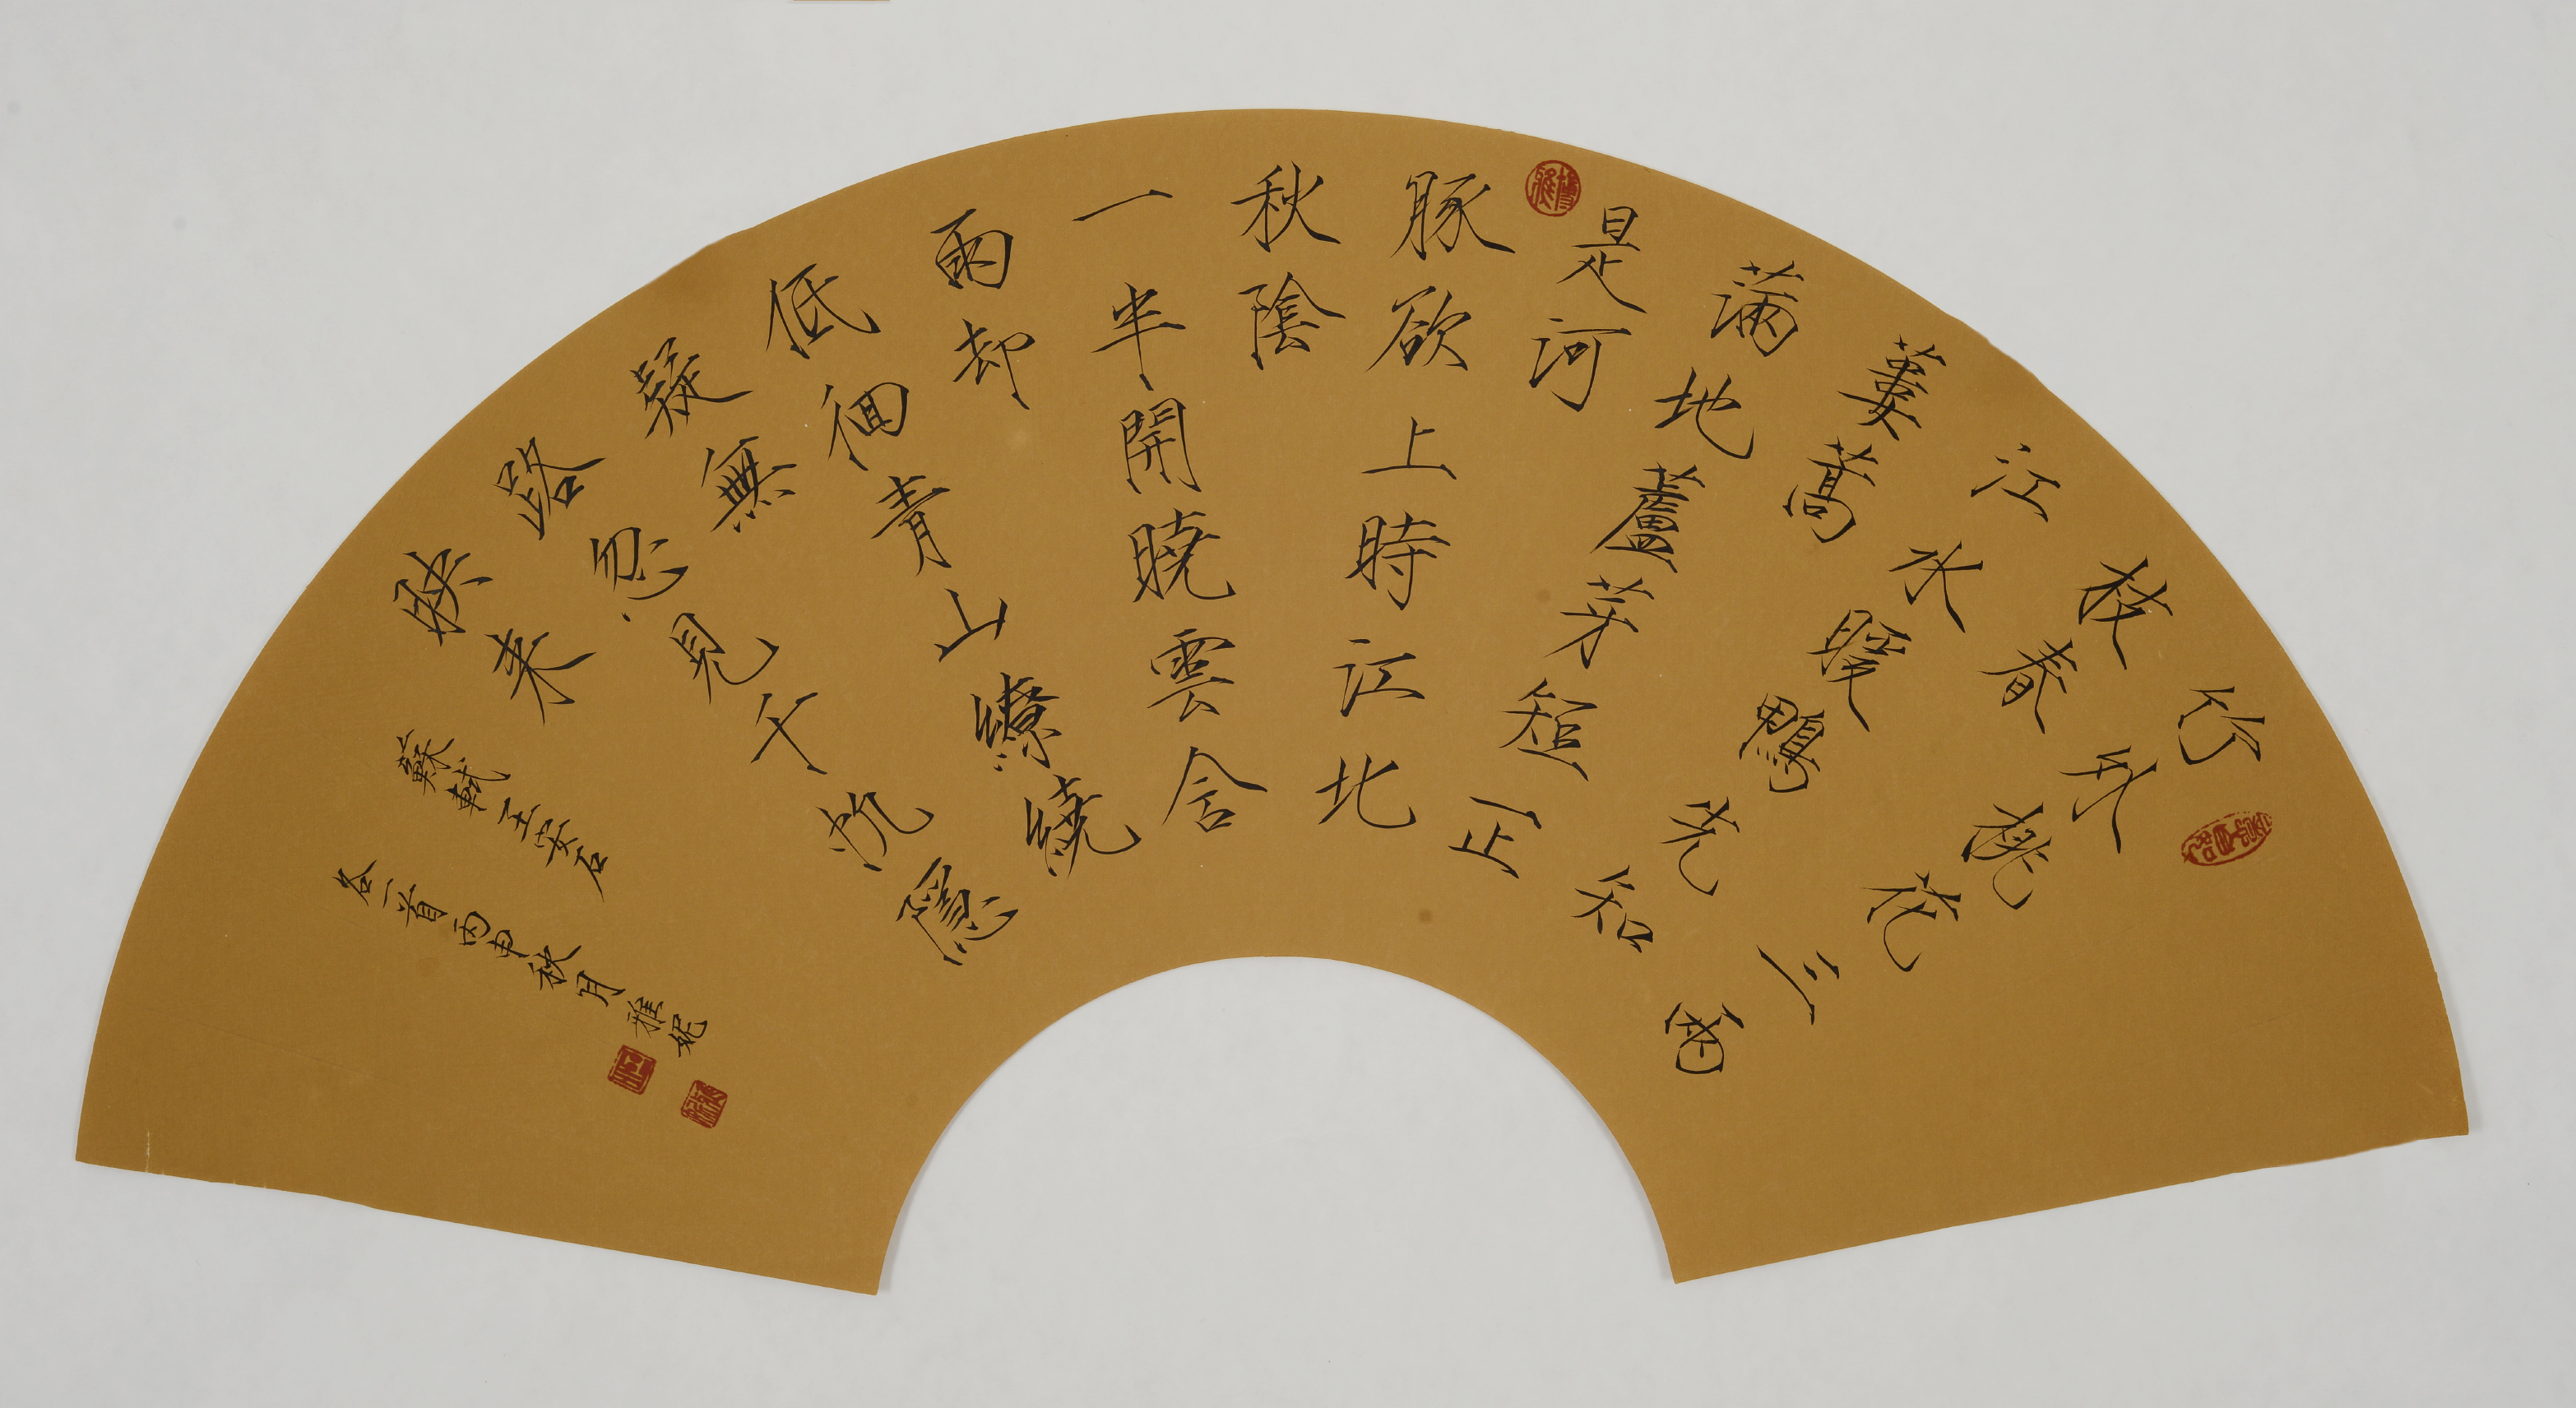 竹外桃花三兩
枝春
江水暖鴨先知
蔞蒿
滿地蘆芽短正
是河
豚欲上時江北
秋陰
一半開曉雲含
雨却
低徊青山繚繞
疑無
路忽見千帆隱
映來
蘇軾王安石
各一首丙申秋月雅妮